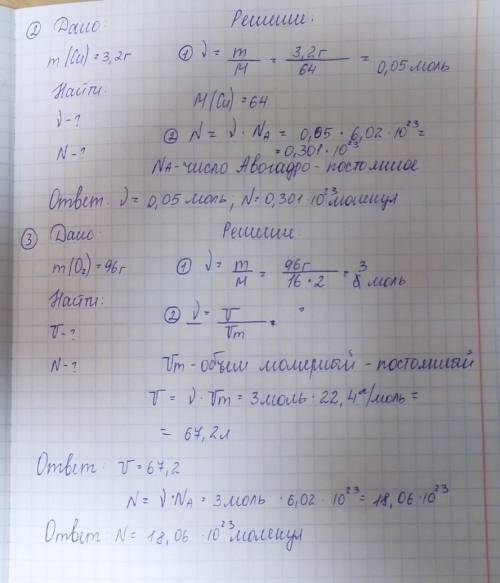 ② Дано:
Решение.
m(Cu) = 3,2г
① ν = m/M = 3,2г/64 = 0,05 моль
Найти:
M(Cu) = 64
ν - ?
② N = ν · NA = 0,05 · 6,02 · 10²³ =
N - ?
= 0,301 · 10²³
NA - число Авогадро - постоянное
Ответ: ν = 0,05 моль, N = 0,301 · 10²³ молекул
③ Дано:
Решение.
m(O₂) = 96г
① ν = m/M = 96г/16·2 = 3 моль
Найти:
② ν = V/Vm =
V - ?
N - ?
Vm - объем молярный - постоянный
V = ν · Vm = 3 моль · 22,4 л/моль =
= 67,2 л
Ответ: V = 67,2
N = ν · NA = 3 моль · 6,02 · 10²³ = 18,06 · 10²³
Ответ N = 18,06 · 10²³ молекул